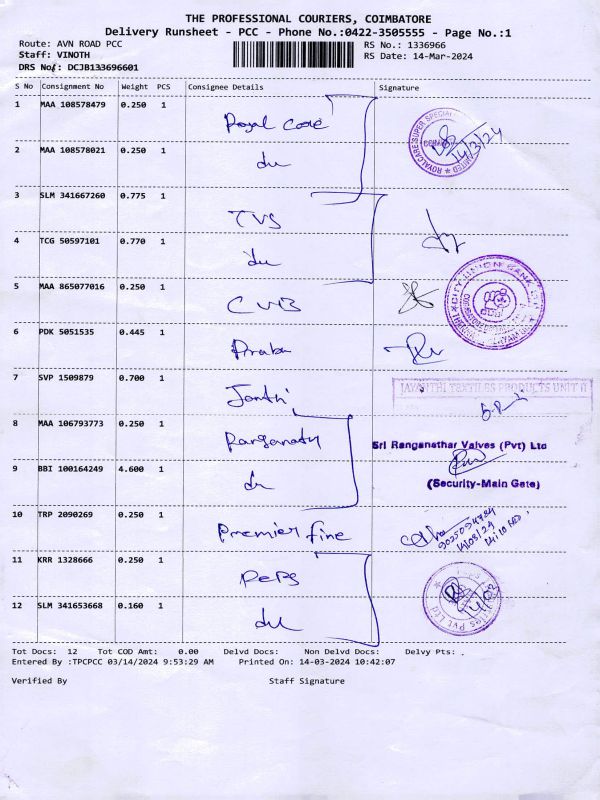 THE PROFESSIONAL COURIERS, COIMBATORE
Delivery Runsheet - PCC - Phone No.:0422-3505555 - Page No.:1
Route: AVN ROAD PCC
RS No.: 1336966
Staff: VINOTH
RS Date: 14-Mar-2024
DRS No/: DCJB133696601
S No Consignment No Weight PCS Consignee Details Signature
1 MAA 108578479 0.250 1 Royal Care
2 MAA 108578021 0.250 1 du
14/3/24
3 SLM 341667260 0.775 1 TVS
4 TCG 50597101 0.770 1 du
5 MAA 865077016 0.250 1 CUB
CITY UNION BANK LTD
6 PDK 5051535 0.445 1 Prabu
7 SVP 1509879 0.700 1 Janthi
JAYANTHI TEXTILES PRODUCTS UNIT II
8 MAA 106793773 0.250 1 Ranganath
Sri Ranganathar Valves (Pvt) Ltd
9 BBI 100164249 4.600 1 du
(Security-Main Gate)
10 TRP 2090269 0.250 1 Premier fine
14/03/24
11 KRR 1328666 0.250 1 PePS
12 SLM 341653668 0.160 1 du
14/03
Tot Docs: 12 Tot COD Amt: 0.00 Delvd Docs: Non Delvd Docs: Delvy Pts: .
Entered By :TPCPCC 03/14/2024 9:53:29 AM Printed On: 14-03-2024 10:42:07
Verified By Staff Signature